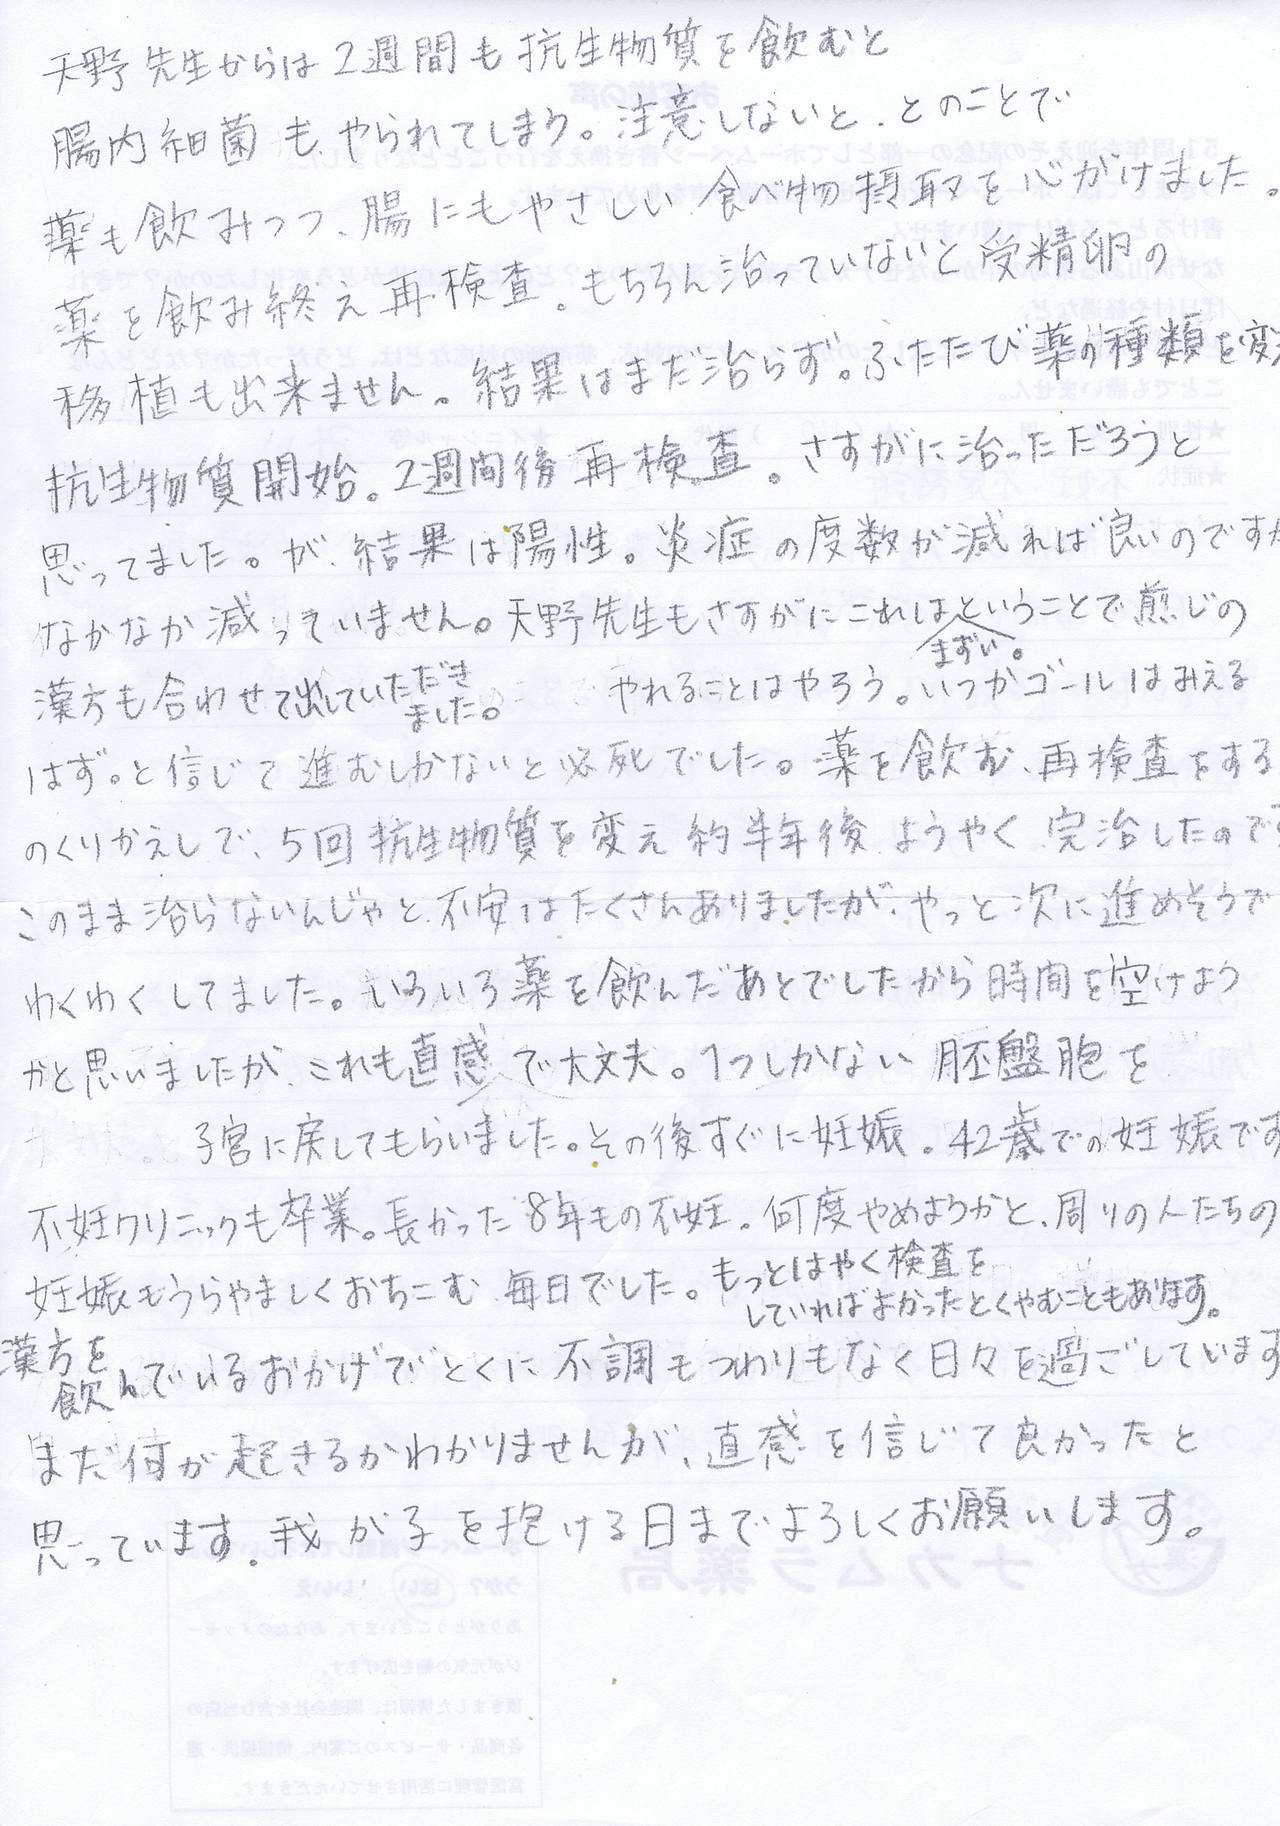 天野先生からは2週間も抗生物質を飲むと
腸内細菌も、やられてしまう。注意しないと、とのことで
薬も飲みつつ、腸にもやさしい食べ物摂取を心がけました。
薬を飲み終え再検査。もちろん治っていないと受精卵の
移植も出来ません。結果はまだ治らず。ふたたび薬の種類を変え
抗生物質開始。2週間後再検査。さすがに治っただろうと
思ってました。が、結果は陽性。炎症の度数が減れば良いのですが
なかなか減っていません。天野先生もさすがにこれはまずい。ということで煎じの
漢方も合わせて出していただきました。やれることはやろう。いつかゴールはみえる
はず。と信じて進むしかないと必死でした。薬を飲む、再検査をする
のくりかえしで、5回抗生物質を変え約半年後ようやく完治したのです
このまま治らないんじゃと、不安はたくさんありましたが、やっと次に進めそうで
わくわくしてました。いろいろ薬を飲んだあとでしたから時間を空けよう
かと思いましたが、これも直感で大丈夫。1つしかない胚盤胞を
子宮に戻してもらいました。その後すぐに妊娠。42歳での妊娠です
不妊クリニックも卒業。長かった8年もの不妊。何度やめようかと、周りの人たちの
妊娠もうらやましくおちこむ毎日でした。もっとはやく検査を
していればよかったとくやむこともあります。
漢方を飲んでいるおかげでとくに不調もつわりもなく日々を過ごしています
まだ何が起きるかわかりませんが、直感を信じて良かったと
思っています。我が子を抱ける日までよろしくお願いします。